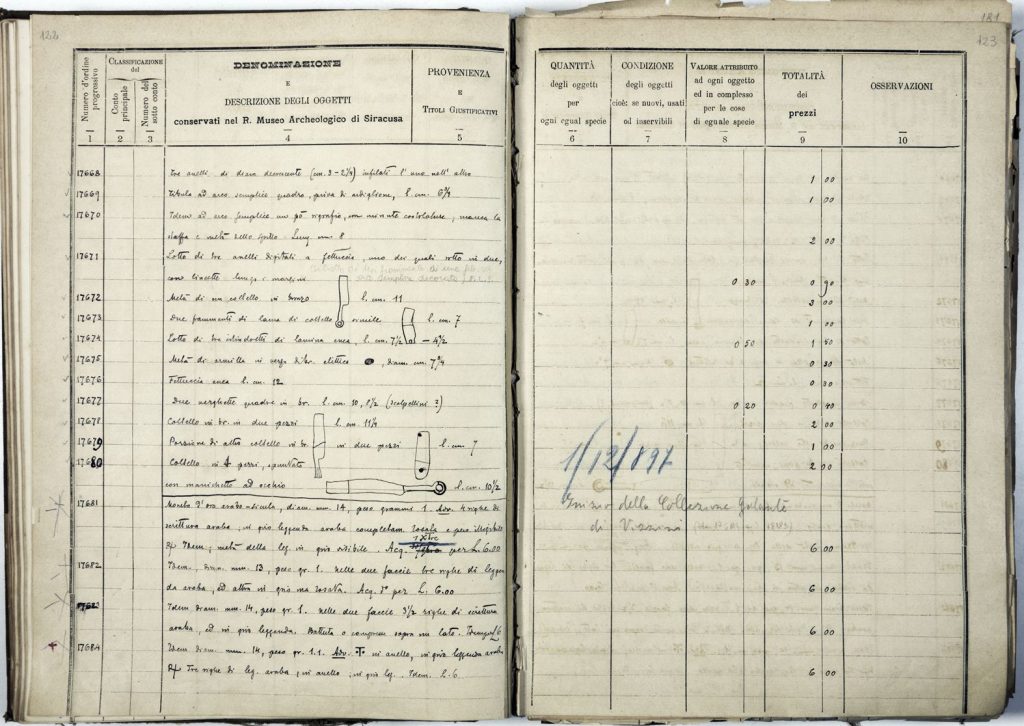 122
Numero d'ordine progressivo
Classificazione del
Conto principale
Numero del sotto conto
DENOMINAZIONE
E
DESCRIZIONE DEGLI OGGETTI
conservati nel R. Museo Archeologico di Siracusa
PROVENIENZA
E
Titoli Giustificativi
1 2 3 4 5
17668 Tre anelli di diam decrescente (cm. 3 - 2 1/4) infilati l'uno nell'altro
17669 Fibula ad arco semplice quadro, priva di ardiglione, l. cm. 6 3/4
17670 Idem ad arco semplice un pò rigonfio, con minute costolature, manca la
staffa e metà dello spillo. Lung. cm. 8
17671 Lotto di tre anelli digitali a fettuccia, uno dei quali rotto in due,
con lineette lungo i margini
17672 Metà di un coltello in bronzo l. cm. 11
17673 Due frammenti di lama di coltello simile l. cm. 7
17674 Lotto di tre di lamina enea, l. cm. 7 1/2 – 4 1/2
17675 Metà di armilla in verga di br. elittica , diam. cm. 7 3/4
17676 Fettuccia enea l. cm. 12
17677 Due verghette quadre in br. l. cm. 10, 8 1/2 (scalpellini ?)
17678 Coltello in br. in due pezzi l. cm. 11 1/4
17679 Porzione di altro coltello in br. in due pezzi l. cm 7
17680 Coltello in 4 pezzi, spuntato
con manichetto ad occhio l. cm. 10 1/2
17681 d'oro diam. mm. 14, peso grammi 1. Adv. 4 righe di
scrittura araba, in giro leggenda araba completam. rosata e però illegibile
Idem; metà della leg. in giro visibile. Acq. per L. 6.00
17682 Idem, diam. mm. 13, peso gr. 1. nelle due faccie tre righe di leggen
da araba, ed altra in giro ma rosata. Acq. per L. 6.00
17683 Idem diam. mm. 14, peso gr. 1. nelle due faccie 3 1/2 righe di scrittura
araba, ed in giro leggenda. Battuta o compressa sopra un lato. Idem L. 6
17684 Idem diam. mm. 14, peso gr. 1.1. Adv. in anello, in giro leggenda araba
Tre righe di leg. araba, in anello; in giro leg. Idem. L. 6
181
123
QUANTITÀ
degli oggetti
per
ogni egual specie
CONDIZIONE
degli oggetti
cioè: se nuovi, usati
od inservibili
Valore attribuito
ad ogni oggetto
ed in complesso
per le cose
di eguale specie
TOTALITÀ
dei
prezzi
OSSERVAZIONI
6 7 8 9 10
1 00
1 00
2 00
0 30 0 90
3 00
1 00
0 50 1 50
0 30
0 30
0 20 0 40
2 00
1 00
2 00
1/12/897
Inizio della Collezione
di Vizzini
6 00
6 00
6 00
6 00